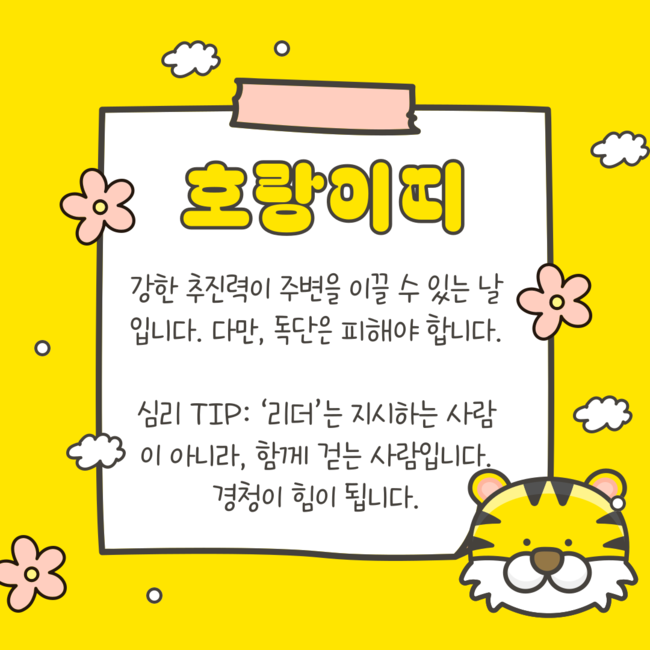 호랑이띠
강한 추진력이 주변을 이끌 수 있는 날
입니다. 다만, 독단은 피해야 합니다.
심리 TIP: ‘리더’는 지시하는 사람
이 아니라, 함께 걷는 사람입니다.
경청이 힘이 됩니다.